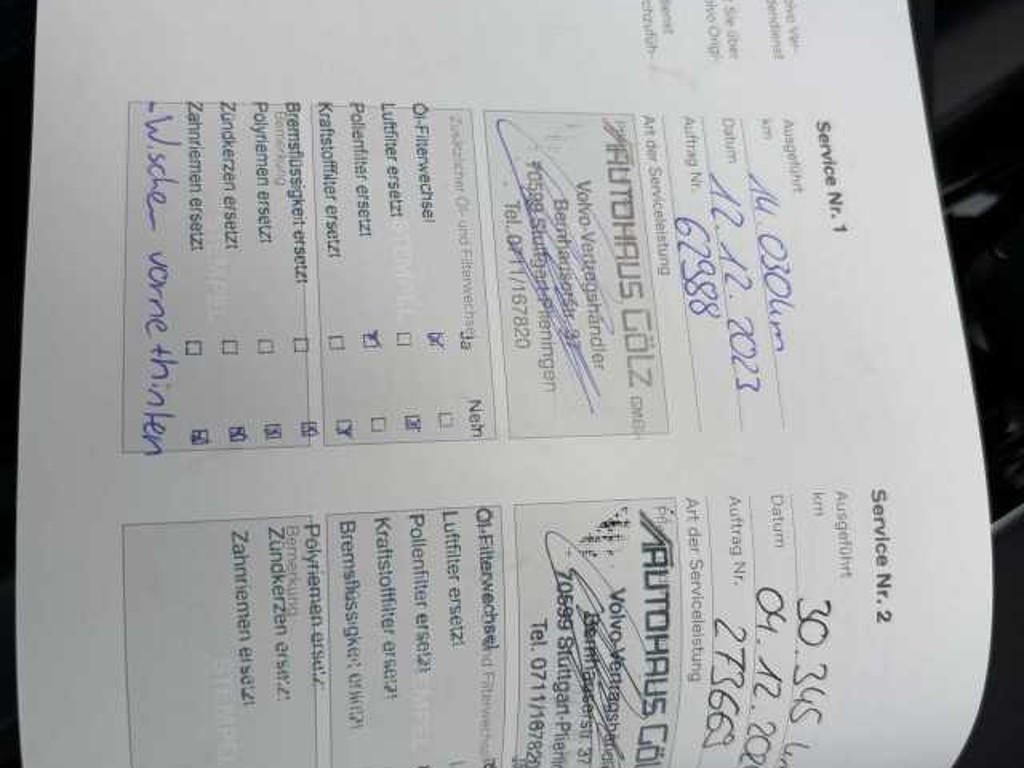 Service Nr. 1
Ausgeführt
km 14.030km
Datum 12.12.2023
Auftrag Nr. 62988
Art der Serviceleistung
AUTOHAUS GÖLZ GMBH
Volvo-Vertragshändler
Bernhauserstr. 37
70599 Stuttgart-Plieningen
Tel. 0711/167820
Zusätzlicher Öl- und Filterwechsel Ja Nein
Öl-Filterwechsel
Luftfilter ersetzt
Pollenfilter ersetzt
Kraftstofffilter ersetzt
Bremsflüssigkeit ersetzt
Bemerkung
Polyriemen ersetzt
Zündkerzen ersetzt
Zahnriemen ersetzt
- Wischer vorne + hinten
Service Nr. 2
Ausgeführt
km 30.345
Datum 04.12.
Auftrag Nr. 273669
Art der Serviceleistung
AUTOHAUS GÖL
Bernhauserstr. 37
70599 Stuttgart-Plienin
Tel. 0711/16782
Öl-Filterwechsel
Luftfilter ersetzt
Pollenfilter ersetzt
Kraftstofffilter ersetzt
Bremsflüssigkeit ersetzt
Polyriemen ersetzt
Bemerkung
Zündkerzen ersetzt
Zahnriemen ersetzt